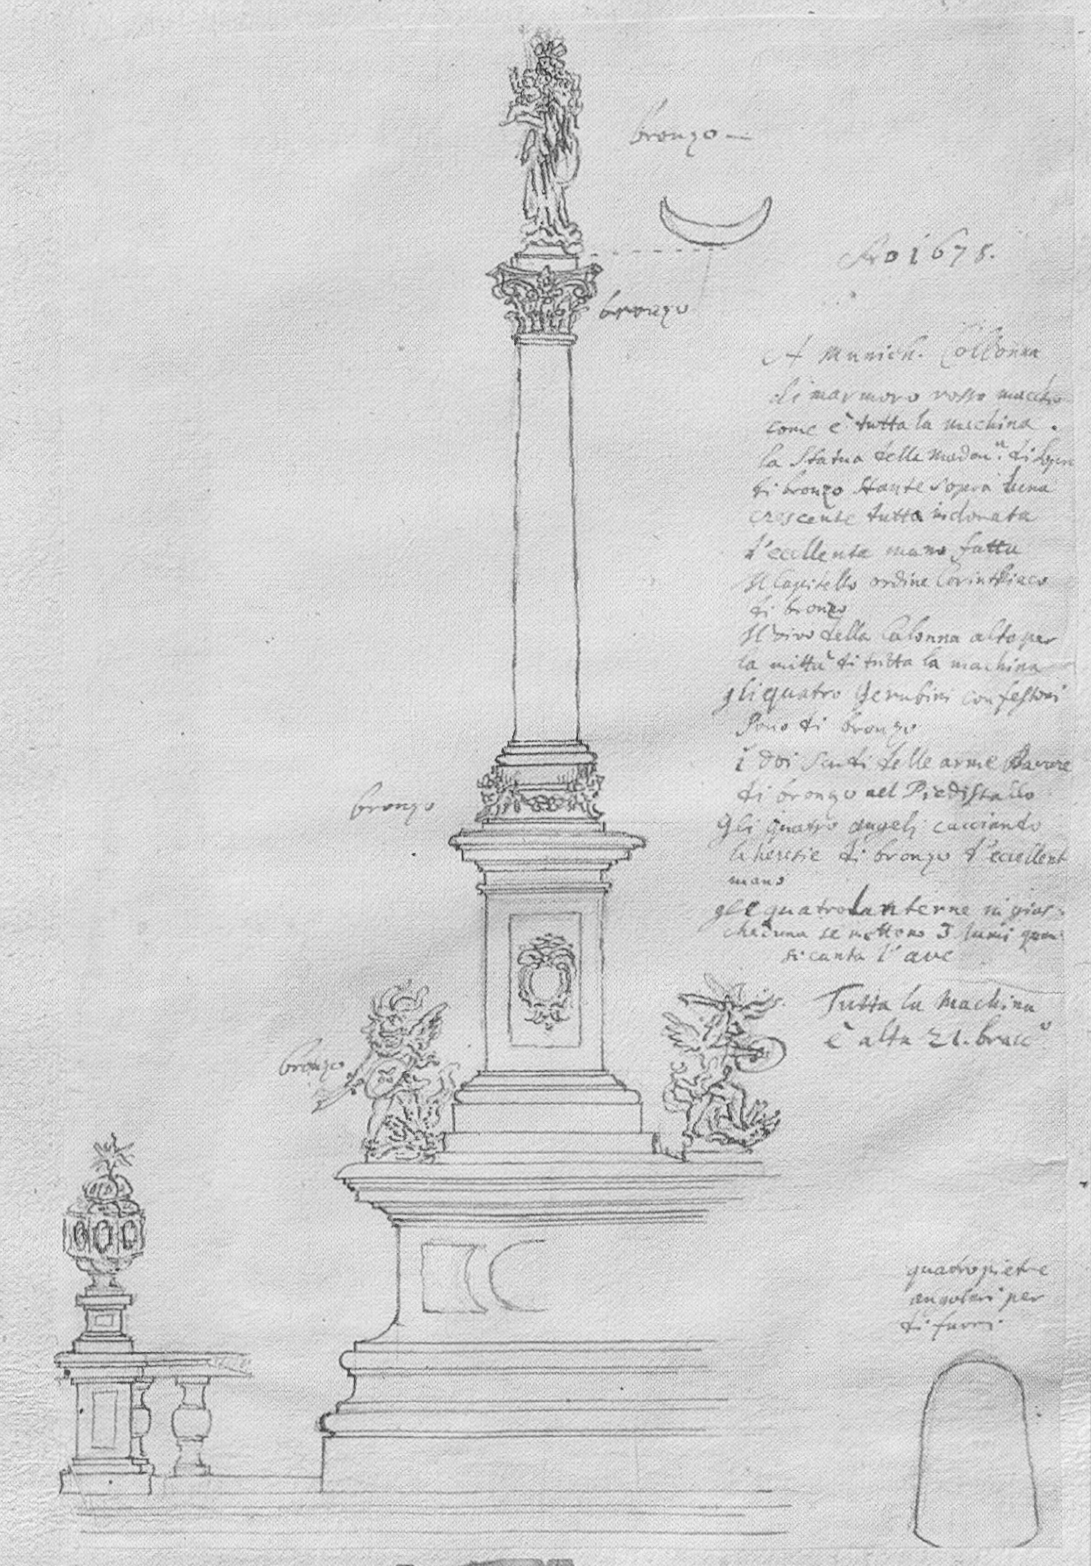 bronzo
Ao 1678.
bronzo
A Munich. Collonna
di marmoro rosso macchio
come è tutta la machina.
la statua della Madon.ª di sopra
di bronzo stante sopra luna
crescente tutta indorata
d'eccellente mano fatta
Il Capitello ordine Corinthiaco
di bronzo
Il vivo della Colonna alto per
la mittà di tutta la machina
gli quatro Jerubini con festoni
sono di bronzo
i doi scudi delle arme Bavare
di bronzo nel Piedistallo
bronzo
Gli quatro angeli cacciando
la heresie di bronzo d'eccellent
mano
gle quatro lanterne in gias-
cheduna se mettono 3 lumi quan-
si canta l'ave
Tutta la Machina
è alta 21. bracc
bronzo
quatro pietre
angolari per
di fuori